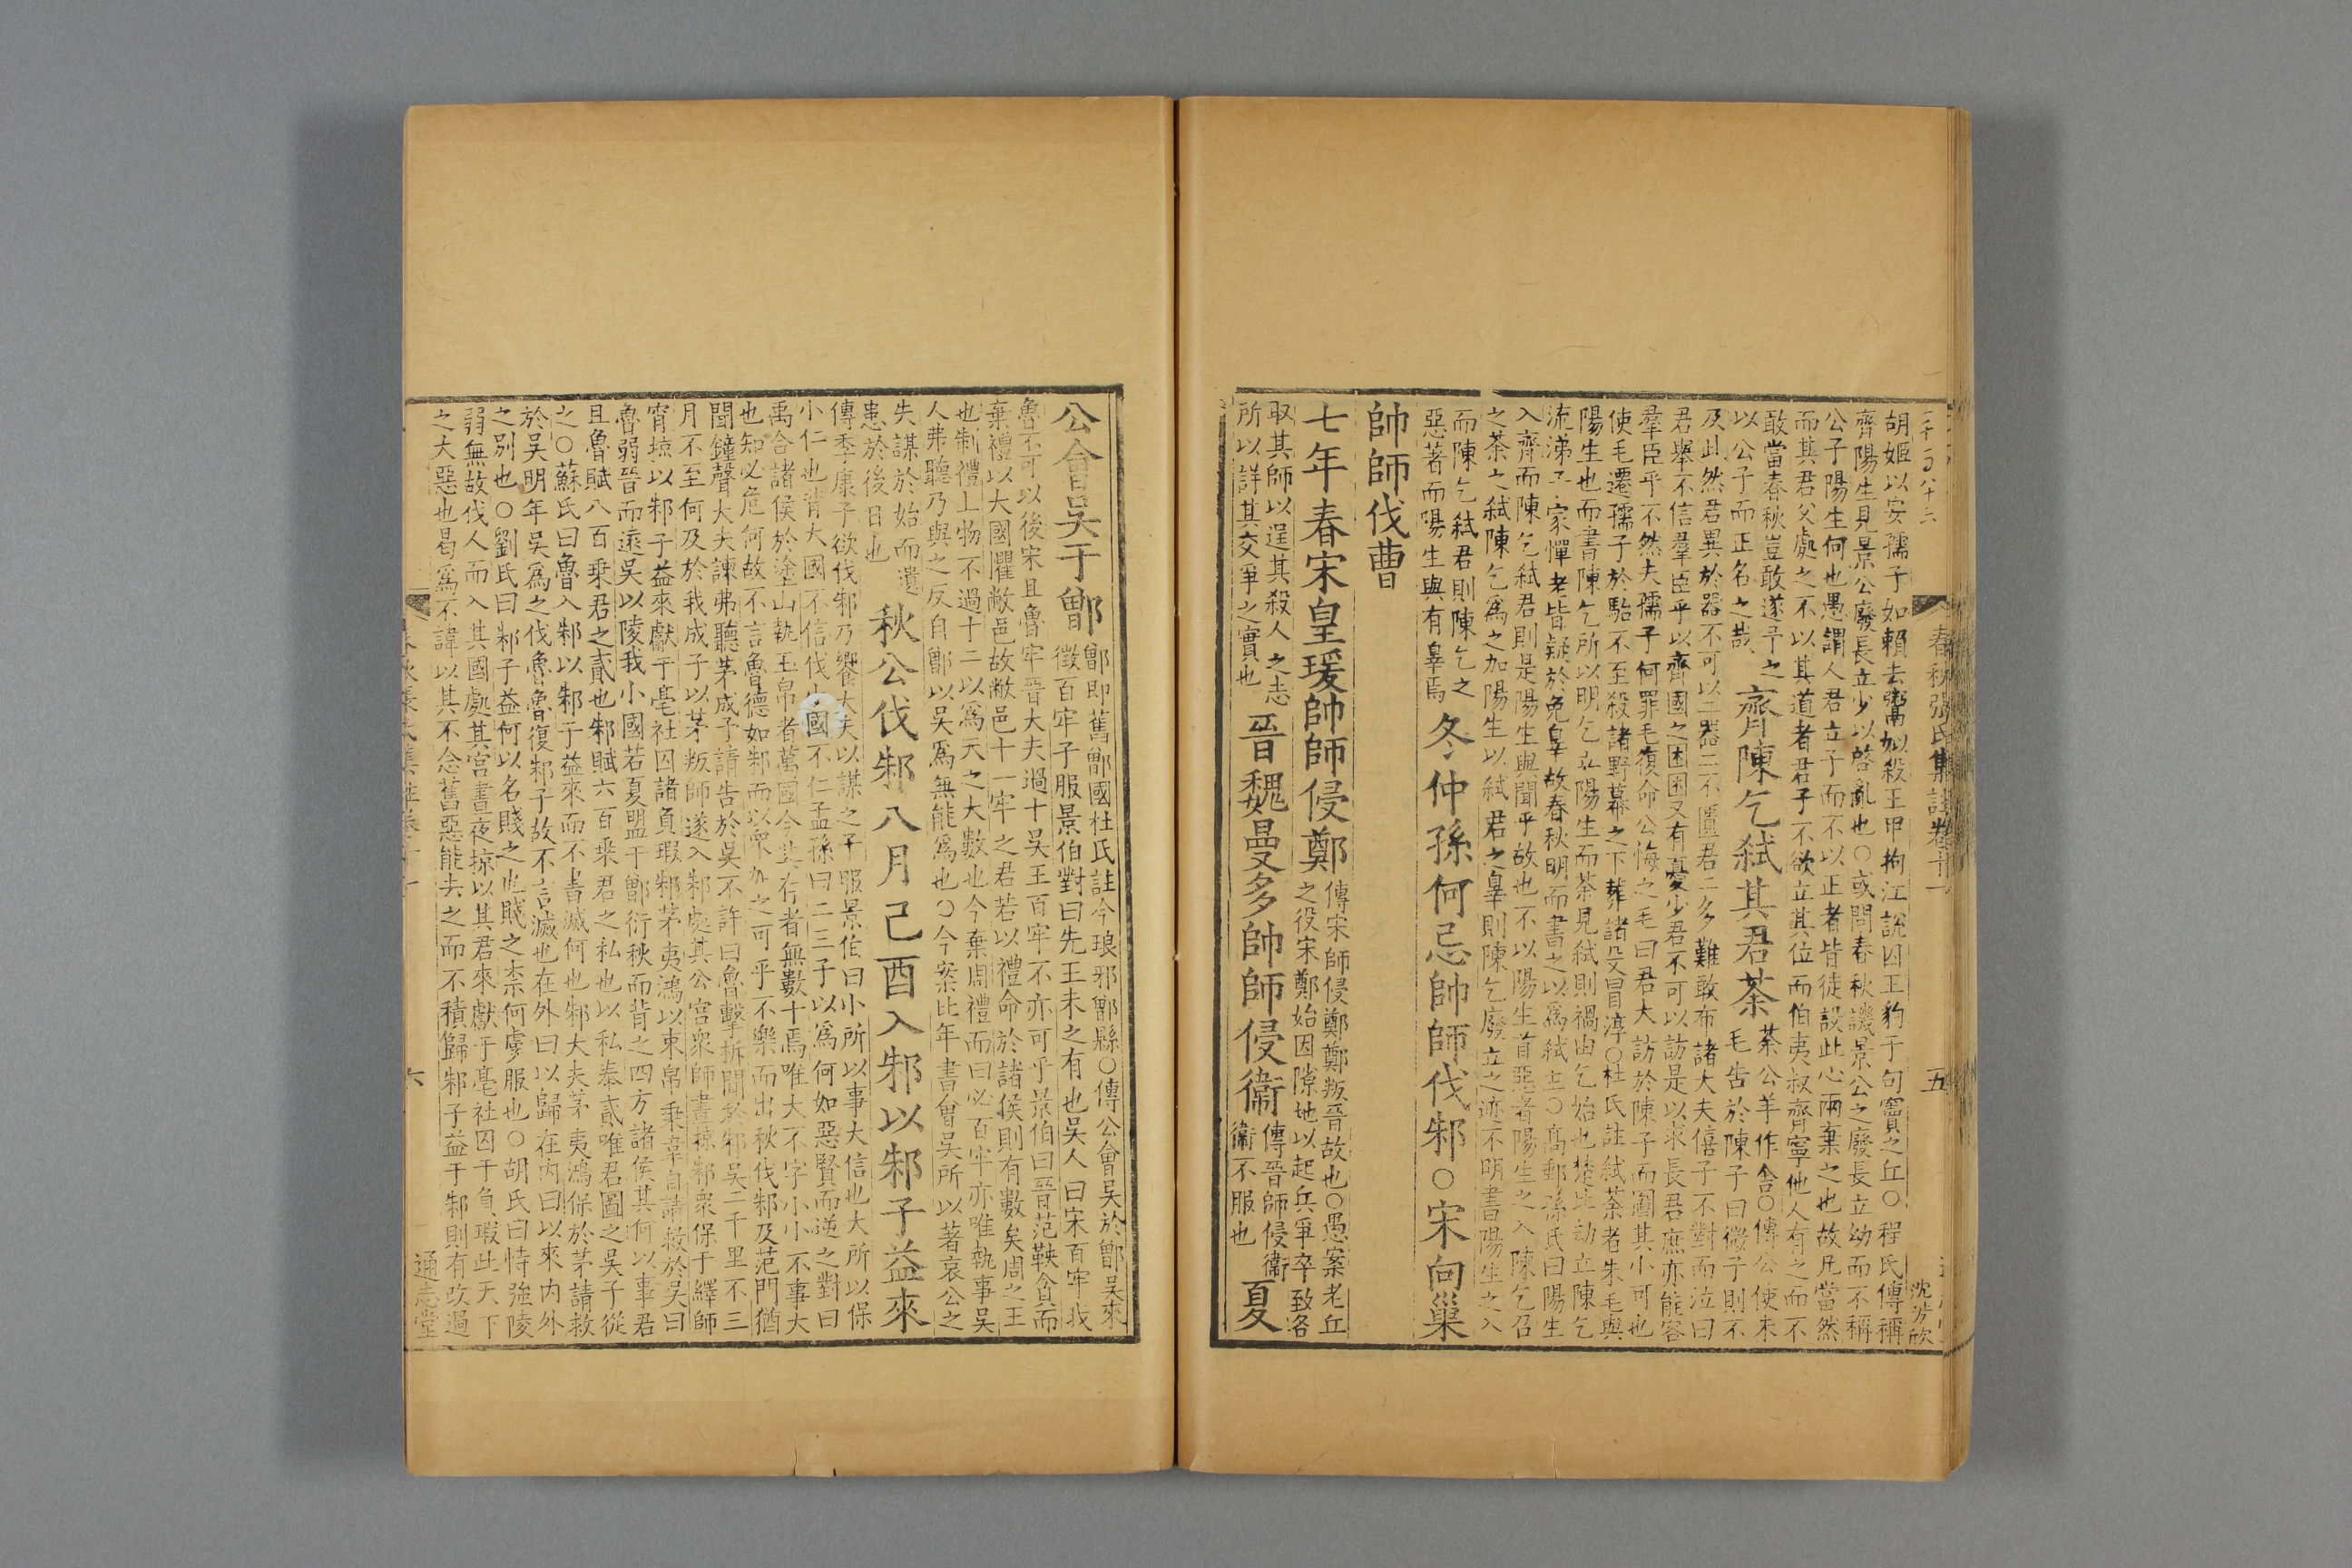 二千一百八十六
春秋張氏集註卷十一
五
沈芳欣
胡姬以安孺子如賴去鬻姒殺王甲拘江說囚王豹于句竇之丘○程氏傳稱
齊陽生見景公廢長立少以啓亂也○或問春秋譏景公之廢長立幼而不稱
公子陽生何也愚謂人君立子而不以正者皆徒設此心兩棄之也故凡當然
而其君父處之不以其道者君子不欲立其位而伯夷叔齊寧他人有之而不
敢當春秋豈敢遂予之
以公子而正名之哉
齊陳乞弒其君荼
荼公羊作舍○傳公使朱
毛告於陳子曰微子則不
及此然君異於器不可以二器二不匱君二多難敢布諸大夫僖子不對而泣曰
君舉不信羣臣乎以齊國之困困又有憂少君不可以訪是以求長君庶亦能容
羣臣乎不然夫孺子何罪毛復命公悔之毛曰君大訪於陳子而圖其小可也
使毛遷孺子於駘不至殺諸野幕之下葬諸殳冒淳○杜氏註弒荼者朱毛與
陽生也而書陳乞所以明乞立陽生而荼見弒則禍由乞始也楚比劫立陳乞
流涕子家憚老皆疑於免辠故春秋明而書之以爲弒主○高郵孫氏曰陽生
入齊而陳乞弒君則是陽生與聞乎故也不以陽生首惡者陽生之入陳乞召
之荼之弒陳乞爲之加陽生以弒君之辠則陳乞廢立之迹不明書陽生之入
而陳乞弒君則陳乞之
惡著而陽生與有辠焉
冬仲孫何忌帥師伐邾○宋向巢
帥師伐曹
七年春宋皇瑗帥師侵鄭
傳宋師侵鄭鄭叛晉故也○愚案老丘
之役宋鄭始因隙地以起兵爭卒致各
取其師以逞其殺人之志
所以詳其交爭之實也
晉魏曼多帥師侵衞
傳晉師侵衞
衞不服也
夏
公會吳于鄫
鄫即舊鄫國杜氏註今琅邪鄫縣○傳公會吳於鄫吳來
徵百牢子服景伯對曰先王未之有也吳人曰宋百牢我
魯不可以後宋且魯牢晉大夫過十吳王百牢不亦可乎景伯曰晉范鞅貪而
棄禮以大國懼敝邑故敝邑十一牢之君若以禮命於諸侯則有數矣周之王
也制禮上物不過十二以爲天之大數也今棄周禮而曰必百牢亦唯執事吳
人弗聽乃與之反自鄫以吳爲無能爲也○今案比年書會吳所以著哀公之
失謀於始而遺
患於後日也
秋公伐邾八月己酉入邾以邾子益來
傳季康子欲伐邾乃饗大夫以謀之子服景伯曰小所以事大信也大所以保
小仁也背大國不信伐小國不仁孟孫曰二三子以爲何如惡賢而逆之對曰
禹合諸侯於塗山執玉帛者萬國今其存者無數十焉唯大不字小小不事大
也知必危何故不言魯德如邾而以衆加之可乎不樂而出秋伐邾及范門猶
聞鐘聲大夫諫弗聽茅成子請告於吳不許曰魯擊柝聞於邾吳二千里不三
月不至何及於我成子以茅叛師遂入邾處其公宮衆師晝掠邾衆保于繹師
宵掠以邾子益來獻于亳社囚諸負瑕邾茅夷鴻以束帛乘韋自請救於吳曰
魯弱晉而遠吳以陵我小國若夏盟于鄫衍秋而背之四方諸侯其何以事君
且魯賦八百乘君之貳也邾賦六百乘君之私也以私奉貳唯君圖之吳子從
之○蘇氏曰魯入邾以邾子益來而不書滅何也邾大夫茅夷鴻保於茅請救
於吳明年吳爲之伐魯魯復邾子故不言滅也在外曰以歸在內曰以來內外
之別也○劉氏曰邾子益何以名賤之也賤之柰何虜服也○胡氏曰恃強陵
弱無故伐人而入其國處其宮晝夜掠以其君來獻于亳社囚于負瑕此天下
之大惡也曷爲不諱以其不念舊惡能去之而不積歸邾子益于邾則有改過
六
通志堂